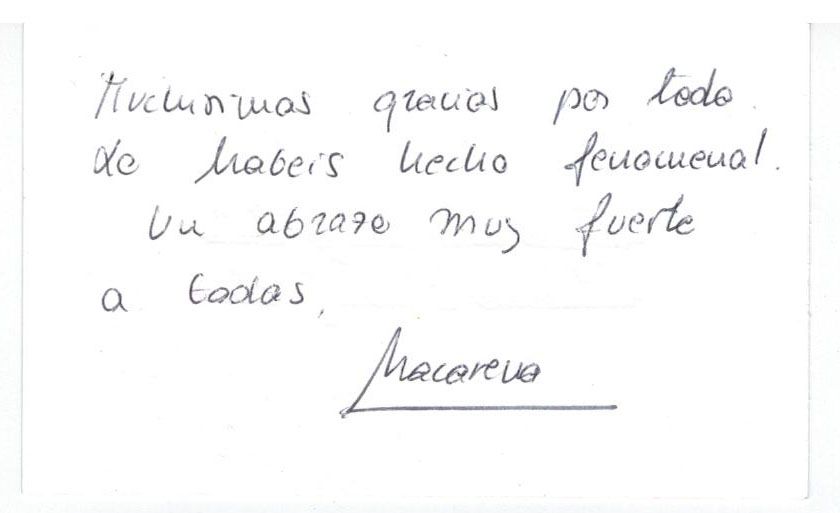 Muchisimas gracias por todo.
Lo habeis hecho fenomenal.
Un abrazo muy fuerte
a todas,
Macarena